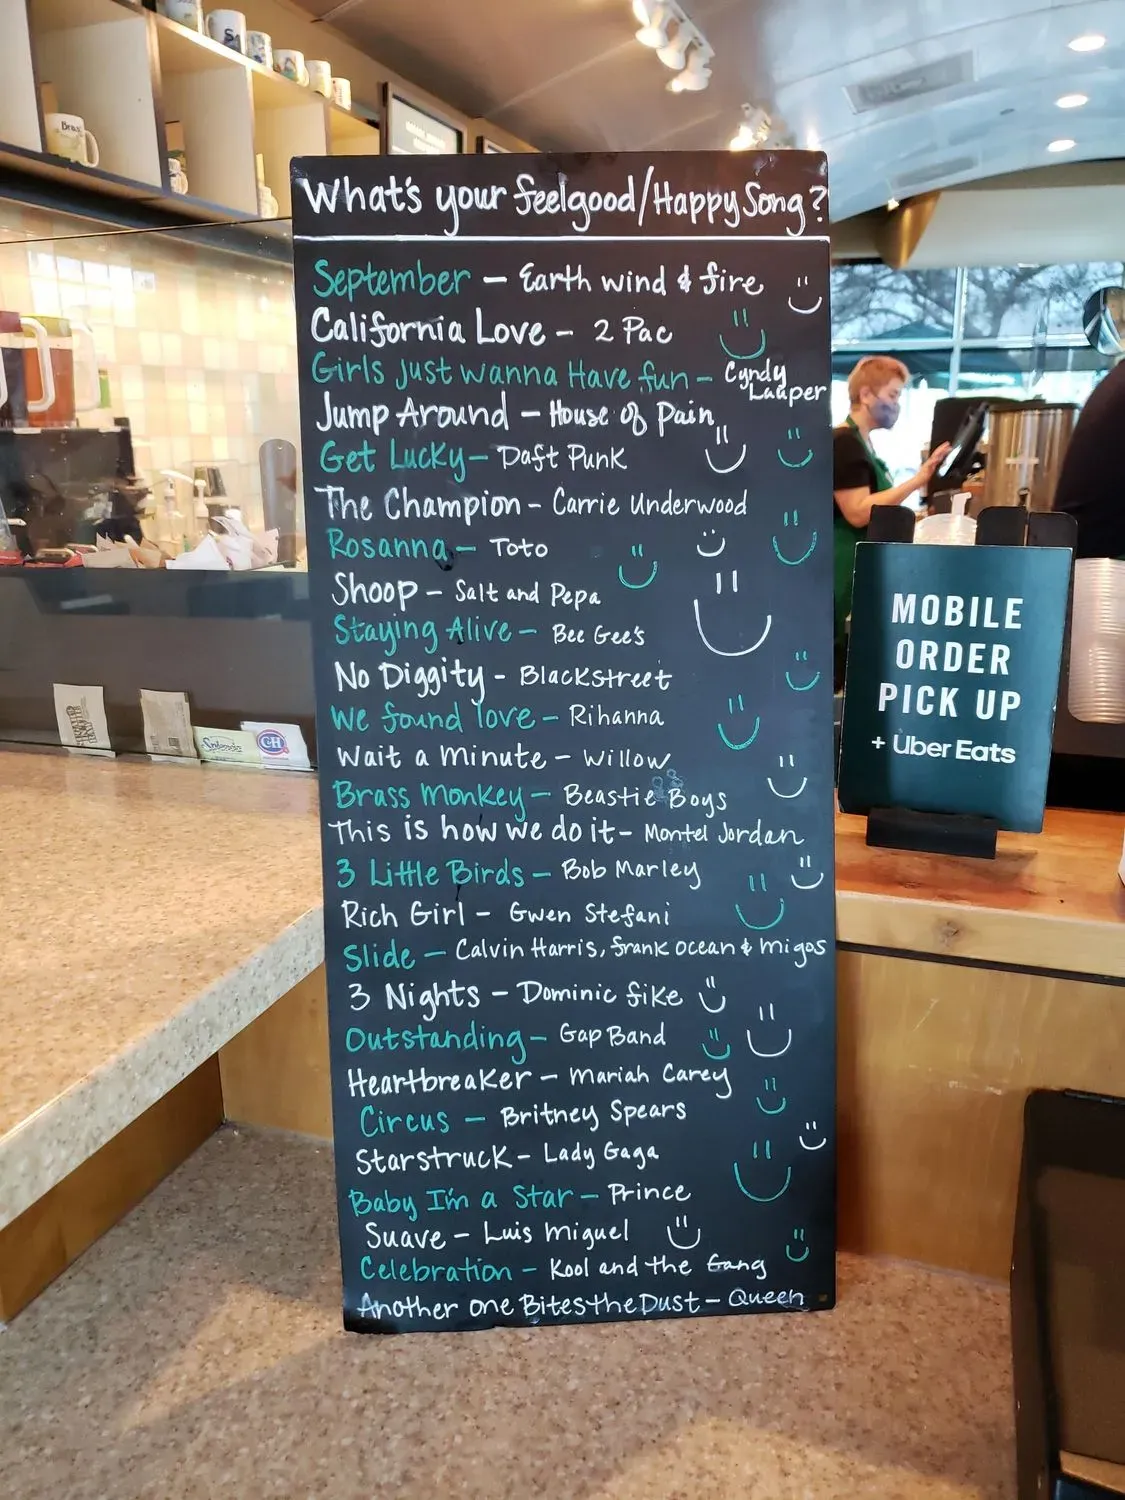 What's your feelgood/Happy Song?
September — Earth wind & fire
California Love - 2 Pac
Girls just wanna Have fun - Cyndy Lauper
Jump Around - House of Pain
Get Lucky - Daft Punk
The Champion - Carrie Underwood
Rosanna - Toto
Shoop - Salt and Pepa
Staying Alive - Bee Gee's
No Diggity - Blackstreet
We found love - Rihanna
Wait a Minute - Willow
Brass Monkey - Beastie Boys
This is how we do it - Montel Jordan
3 Little Birds - Bob Marley
Rich Girl - Gwen Stefani
Slide - Calvin Harris, frank ocean & migos
3 Nights - Dominic fike
Outstanding - Gap Band
Heartbreaker - Mariah Carey
Circus - Britney Spears
Starstruck - Lady Gaga
Baby I'm a Star - Prince
Suave - Luis Miguel
Celebration - Kool and the Gang
Another one Bites the Dust - Queen
MOBILE
ORDER
PICK UP
+ Uber Eats
Splenda
C&H